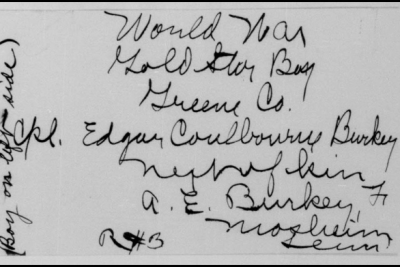 World War
Gold Star Boy
Greene Co.
Cpl. Edgar Coulbourne Burkey
Next of kin
A. E. Burkey F
Mosheim
Tenn
R#3
(Boy on left side)